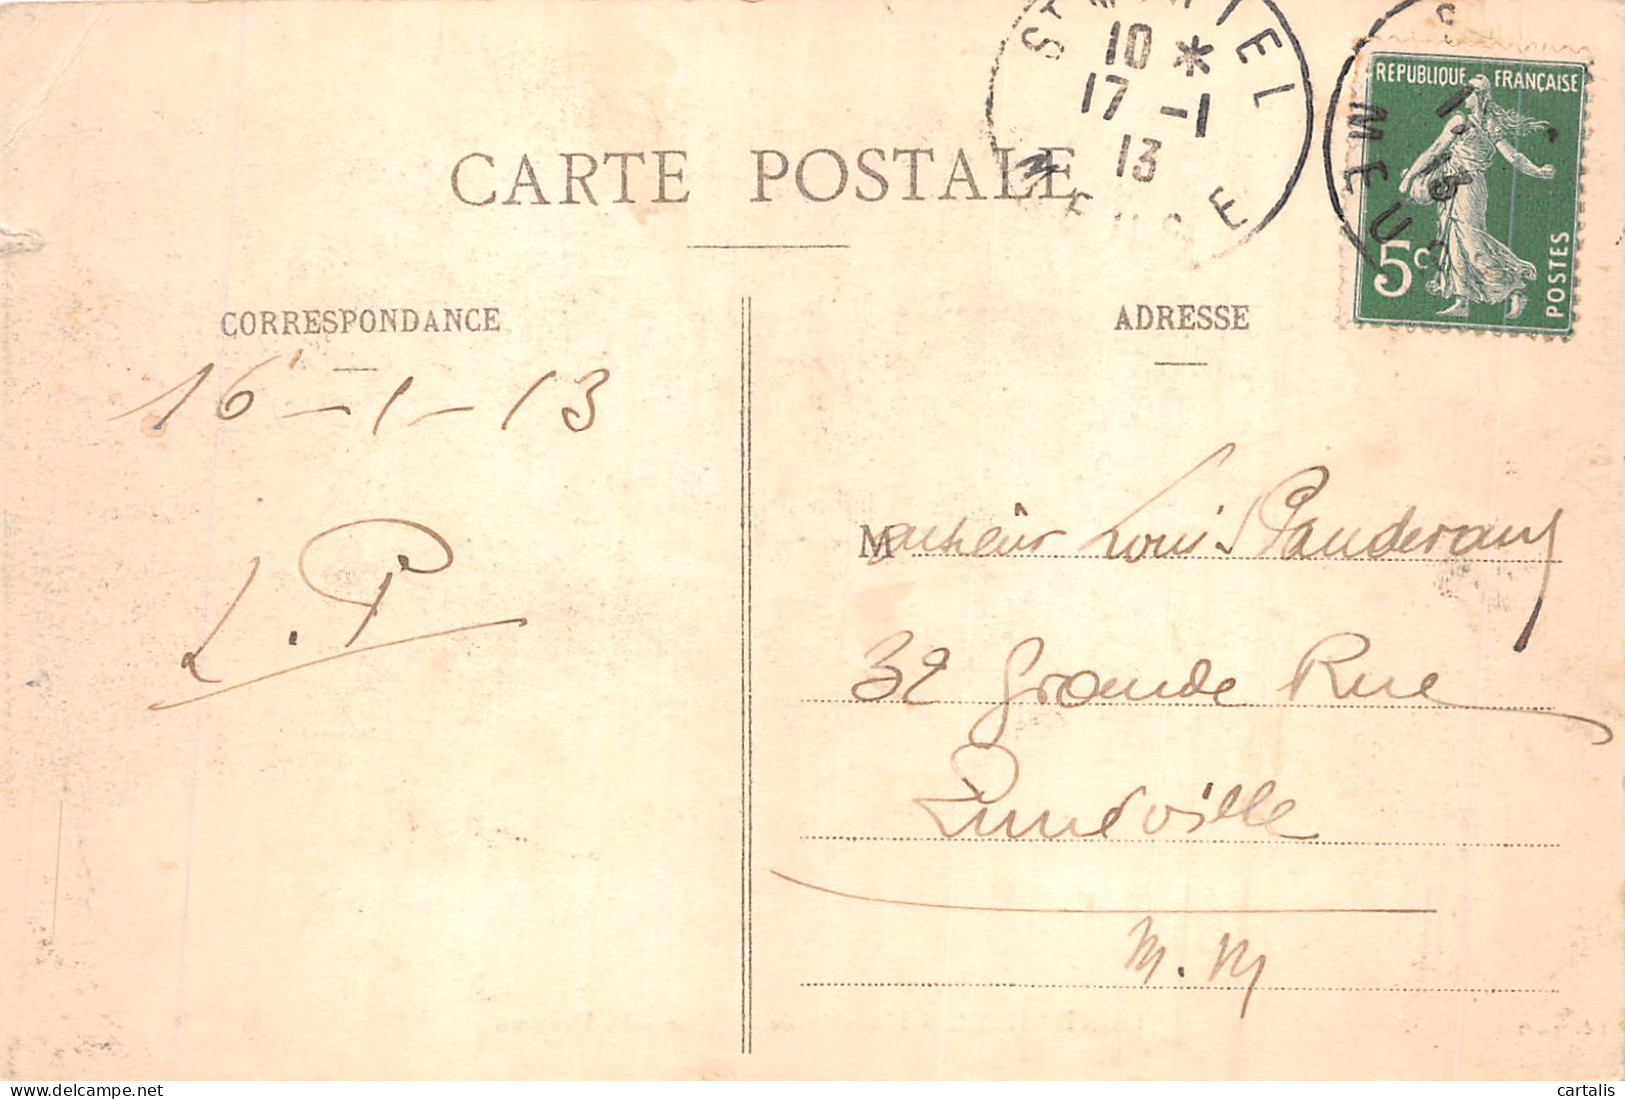 ST MIHIEL
10 *
17 -1
13
MEUSE
RÉPUBLIQUE FRANÇAISE
5c
POSTES
13
MEUSE
CARTE POSTALE
CORRESPONDANCE
ADRESSE
16-1-13
L.P
Monsieur Louis
32 Grande Rue
Lunéville
M.M
cartalis
Delcampe.net